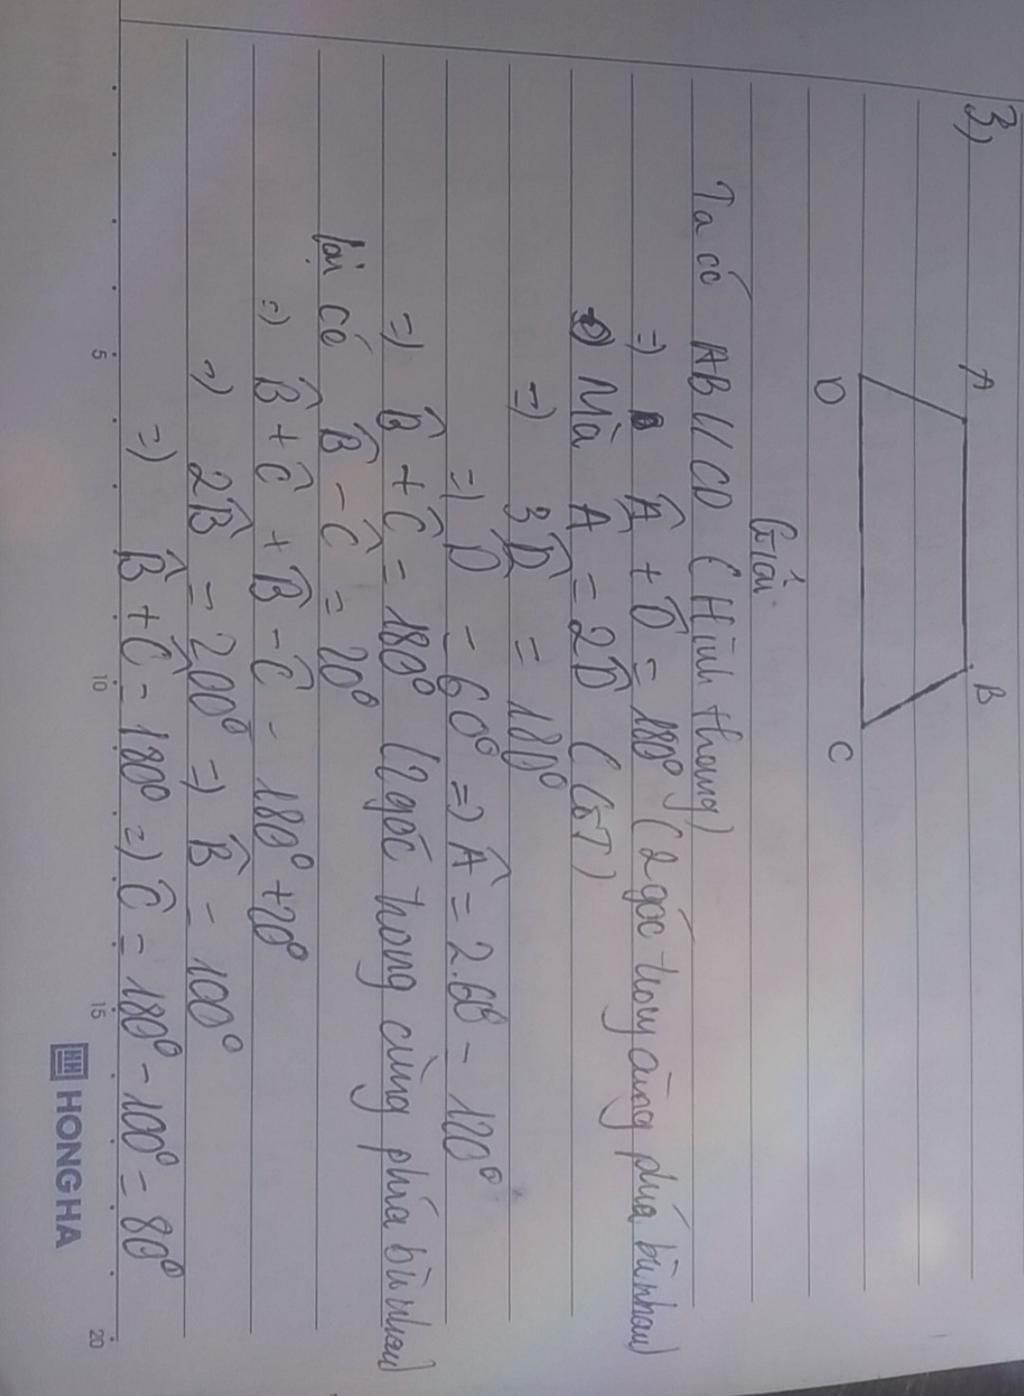 3)
A B
D C
Giải
Ta có AB // CD (Hình thang)
=) Â + D̂ = 180° (2 góc trong cùng phía bù nhau)
Mà Â = 2D̂ (GT)
=) 3D̂ = 180°
=) D̂ = 60° =) Â = 2.60 = 120°
=) B̂ + Ĉ = 180° (2 góc trong cùng phía bù nhau)
lại có B̂ - Ĉ = 20°
=) B̂ + Ĉ + B̂ - Ĉ = 180° + 20°
=) 2B̂ = 200° =) B̂ = 100°
=) B̂ + Ĉ = 180° =) Ĉ = 180° - 100° = 80°
5 10 15 20
HH HONG HA